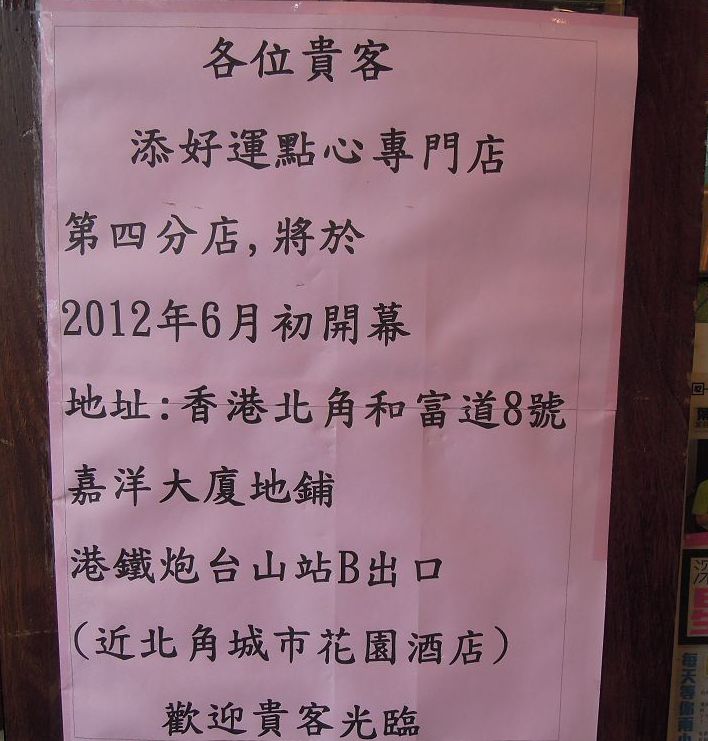 各位貴客
添好運點心專門店
第四分店,將於
2012年6月初開幕
地址:香港北角和富道8號
嘉洋大廈地鋪
港鐵炮台山站B出口
(近北角城市花園酒店)
歡迎貴客光臨
每天等你